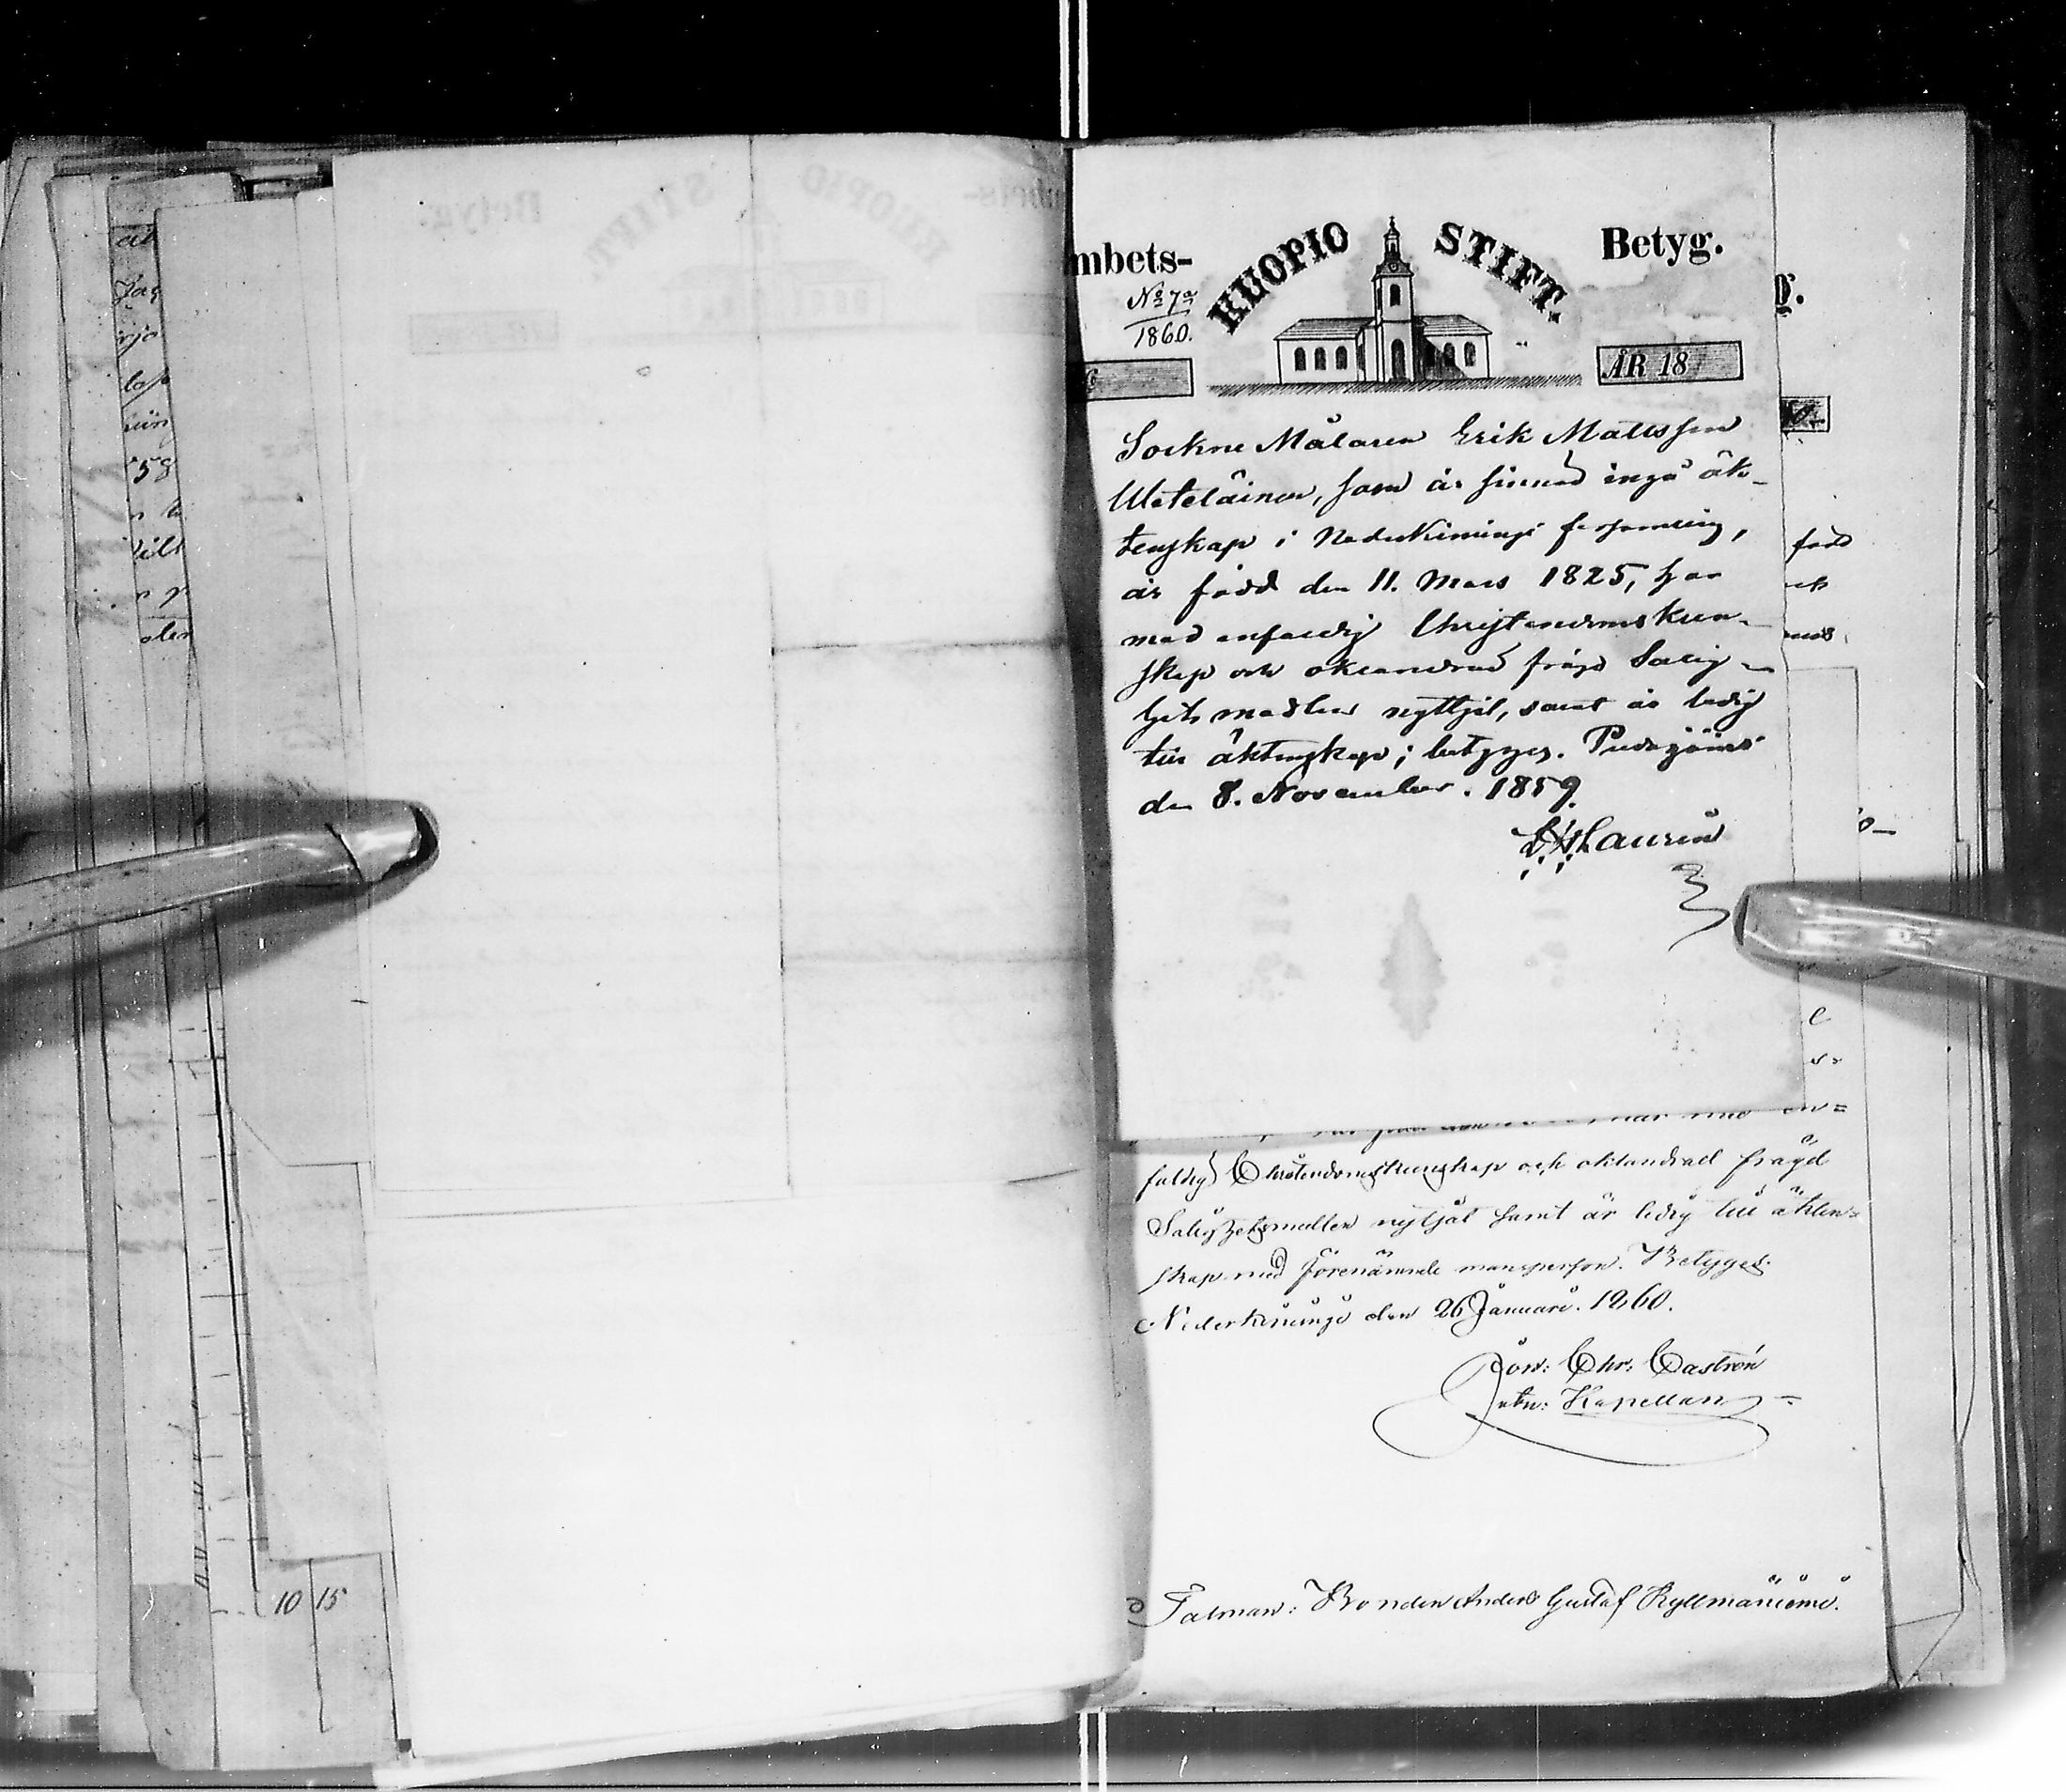 mbets-
KUOPIO STIFT.
Betyg.
No 7a
1860.
ÅR 18
Sockne Målaren Erik Mattsson
Uleteläinen, som är sinnad ingå äk-
tenskap i Nederkiminge församling,
är född den 11. Mars 1825, har
med enfaldig Christendomskun-
skap och oklandrad fräjd Salig-
hets medlen nyttjat, samt är ledig
till äktenskap; betygas. Pudasjärvi
den 8. November. 1859.
Laurin
faldig Christendomskunskap och oklandrad fräjd
Salighetsmedlen nyttjat samt är ledig till äkten-
skap med förenämnde mansperson. Betygas.
Nederkiminge den 26 Januari. 1860.
Joh: Chr: Castrén
Kapellan
Talman: Bonden Anders Gustaf Kyllmäniemi.
född
10 15
58